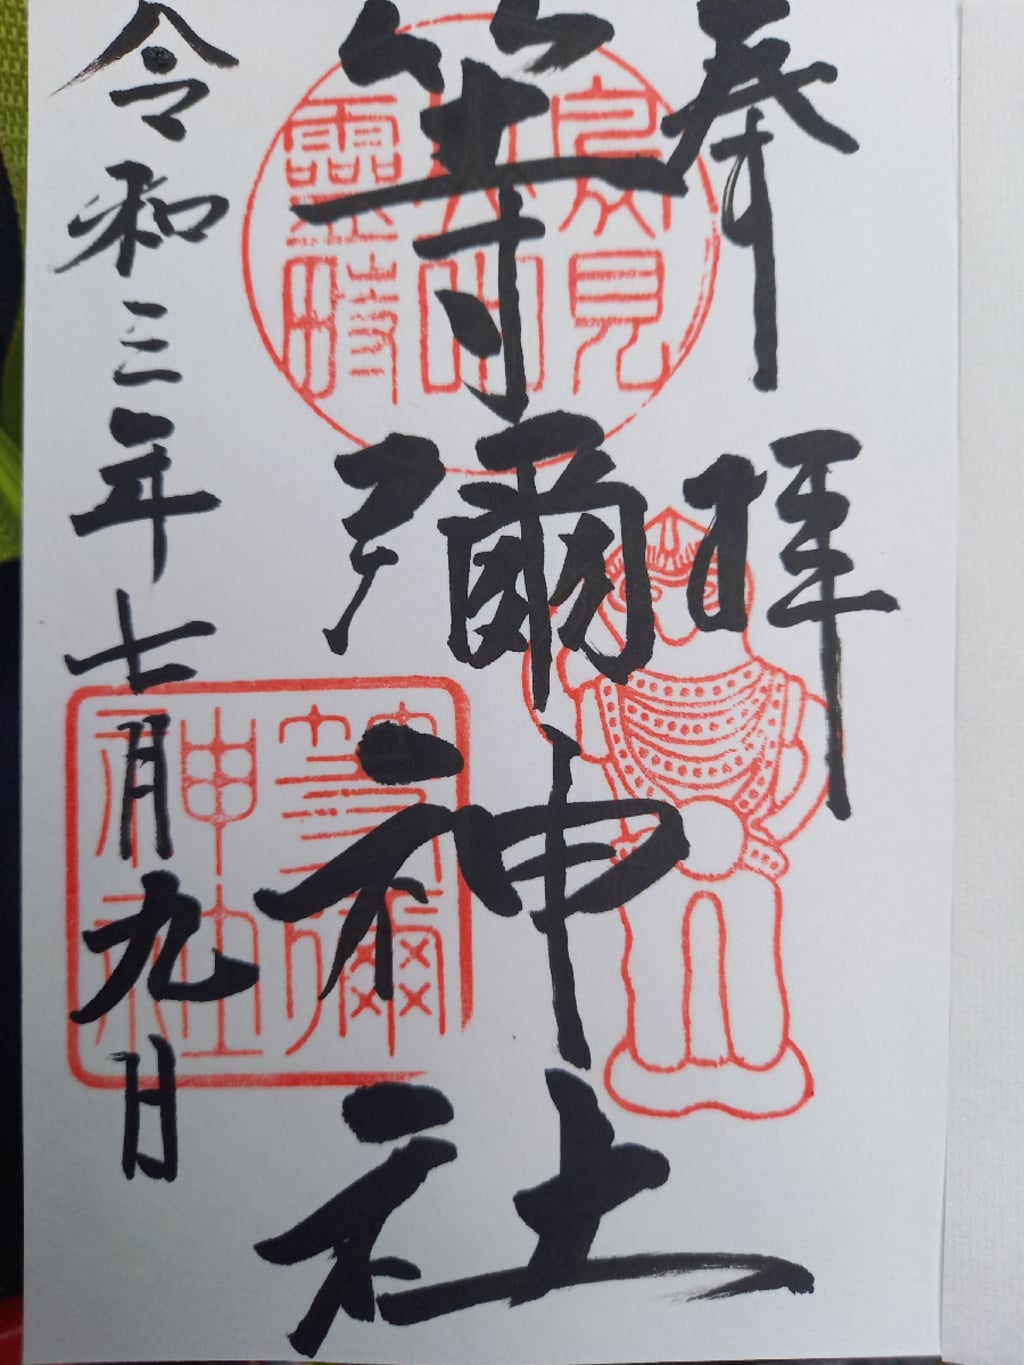 奉拝
等彌神社
令和三年七月九日
鳥見山中霊畤
等彌神社